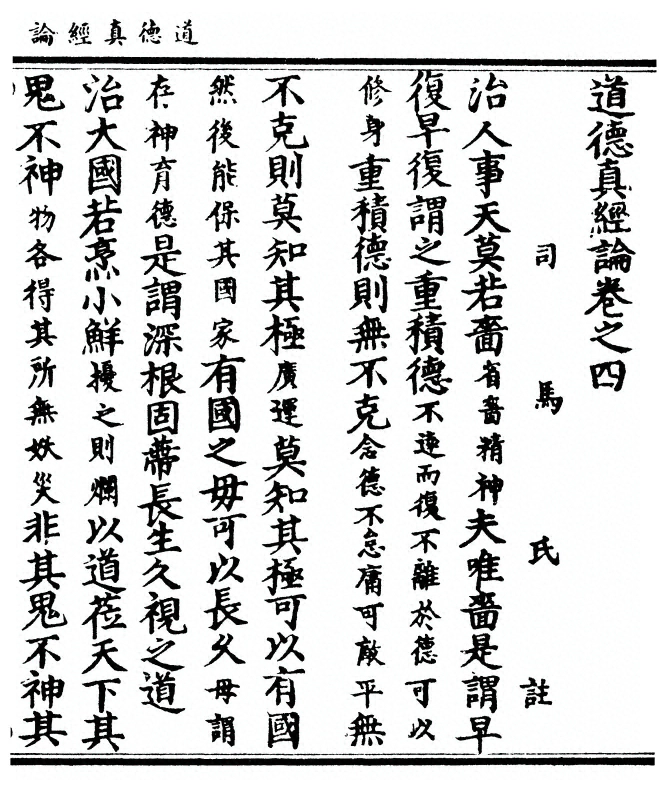 道德真經論
道德真經論卷之四
司馬氏註
治人事天莫若嗇省嗇精神夫唯嗇是謂早
復早復謂之重積德不遠而復不離於德可以
修身重積德則無不克念德不怠庸可敵乎無
不克則莫知其極廣運莫知其極可以有國
然後能保其國家有國之毋可以長久毋謂
存神育德是謂深根固蔕長生久視之道
治大國若烹小鮮擾之則爛以道莅天下其
鬼不神物各得其所無妖災非其鬼不神其